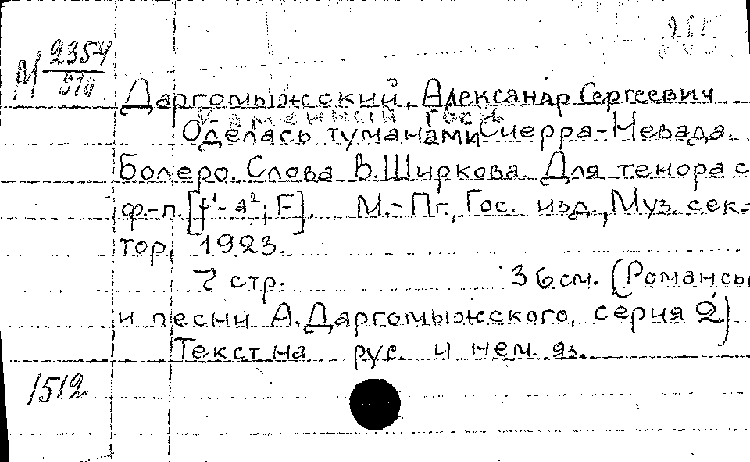 М 2354
510
Даргомыжский, Александр Сергеевич
Каменный гость
Оделась туманами Сиерра-Невада.
Болеро. Слова В. Ширкова. Для тенора с
ф-п. [f¹-a², F]. М.-Пг., Гос. изд., Муз. сек-
тор, 1923.
7 стр. 36 см. (Романсы
и песни А. Даргомыжского, серия 2)
Текст на рус. и нем. яз.
1512